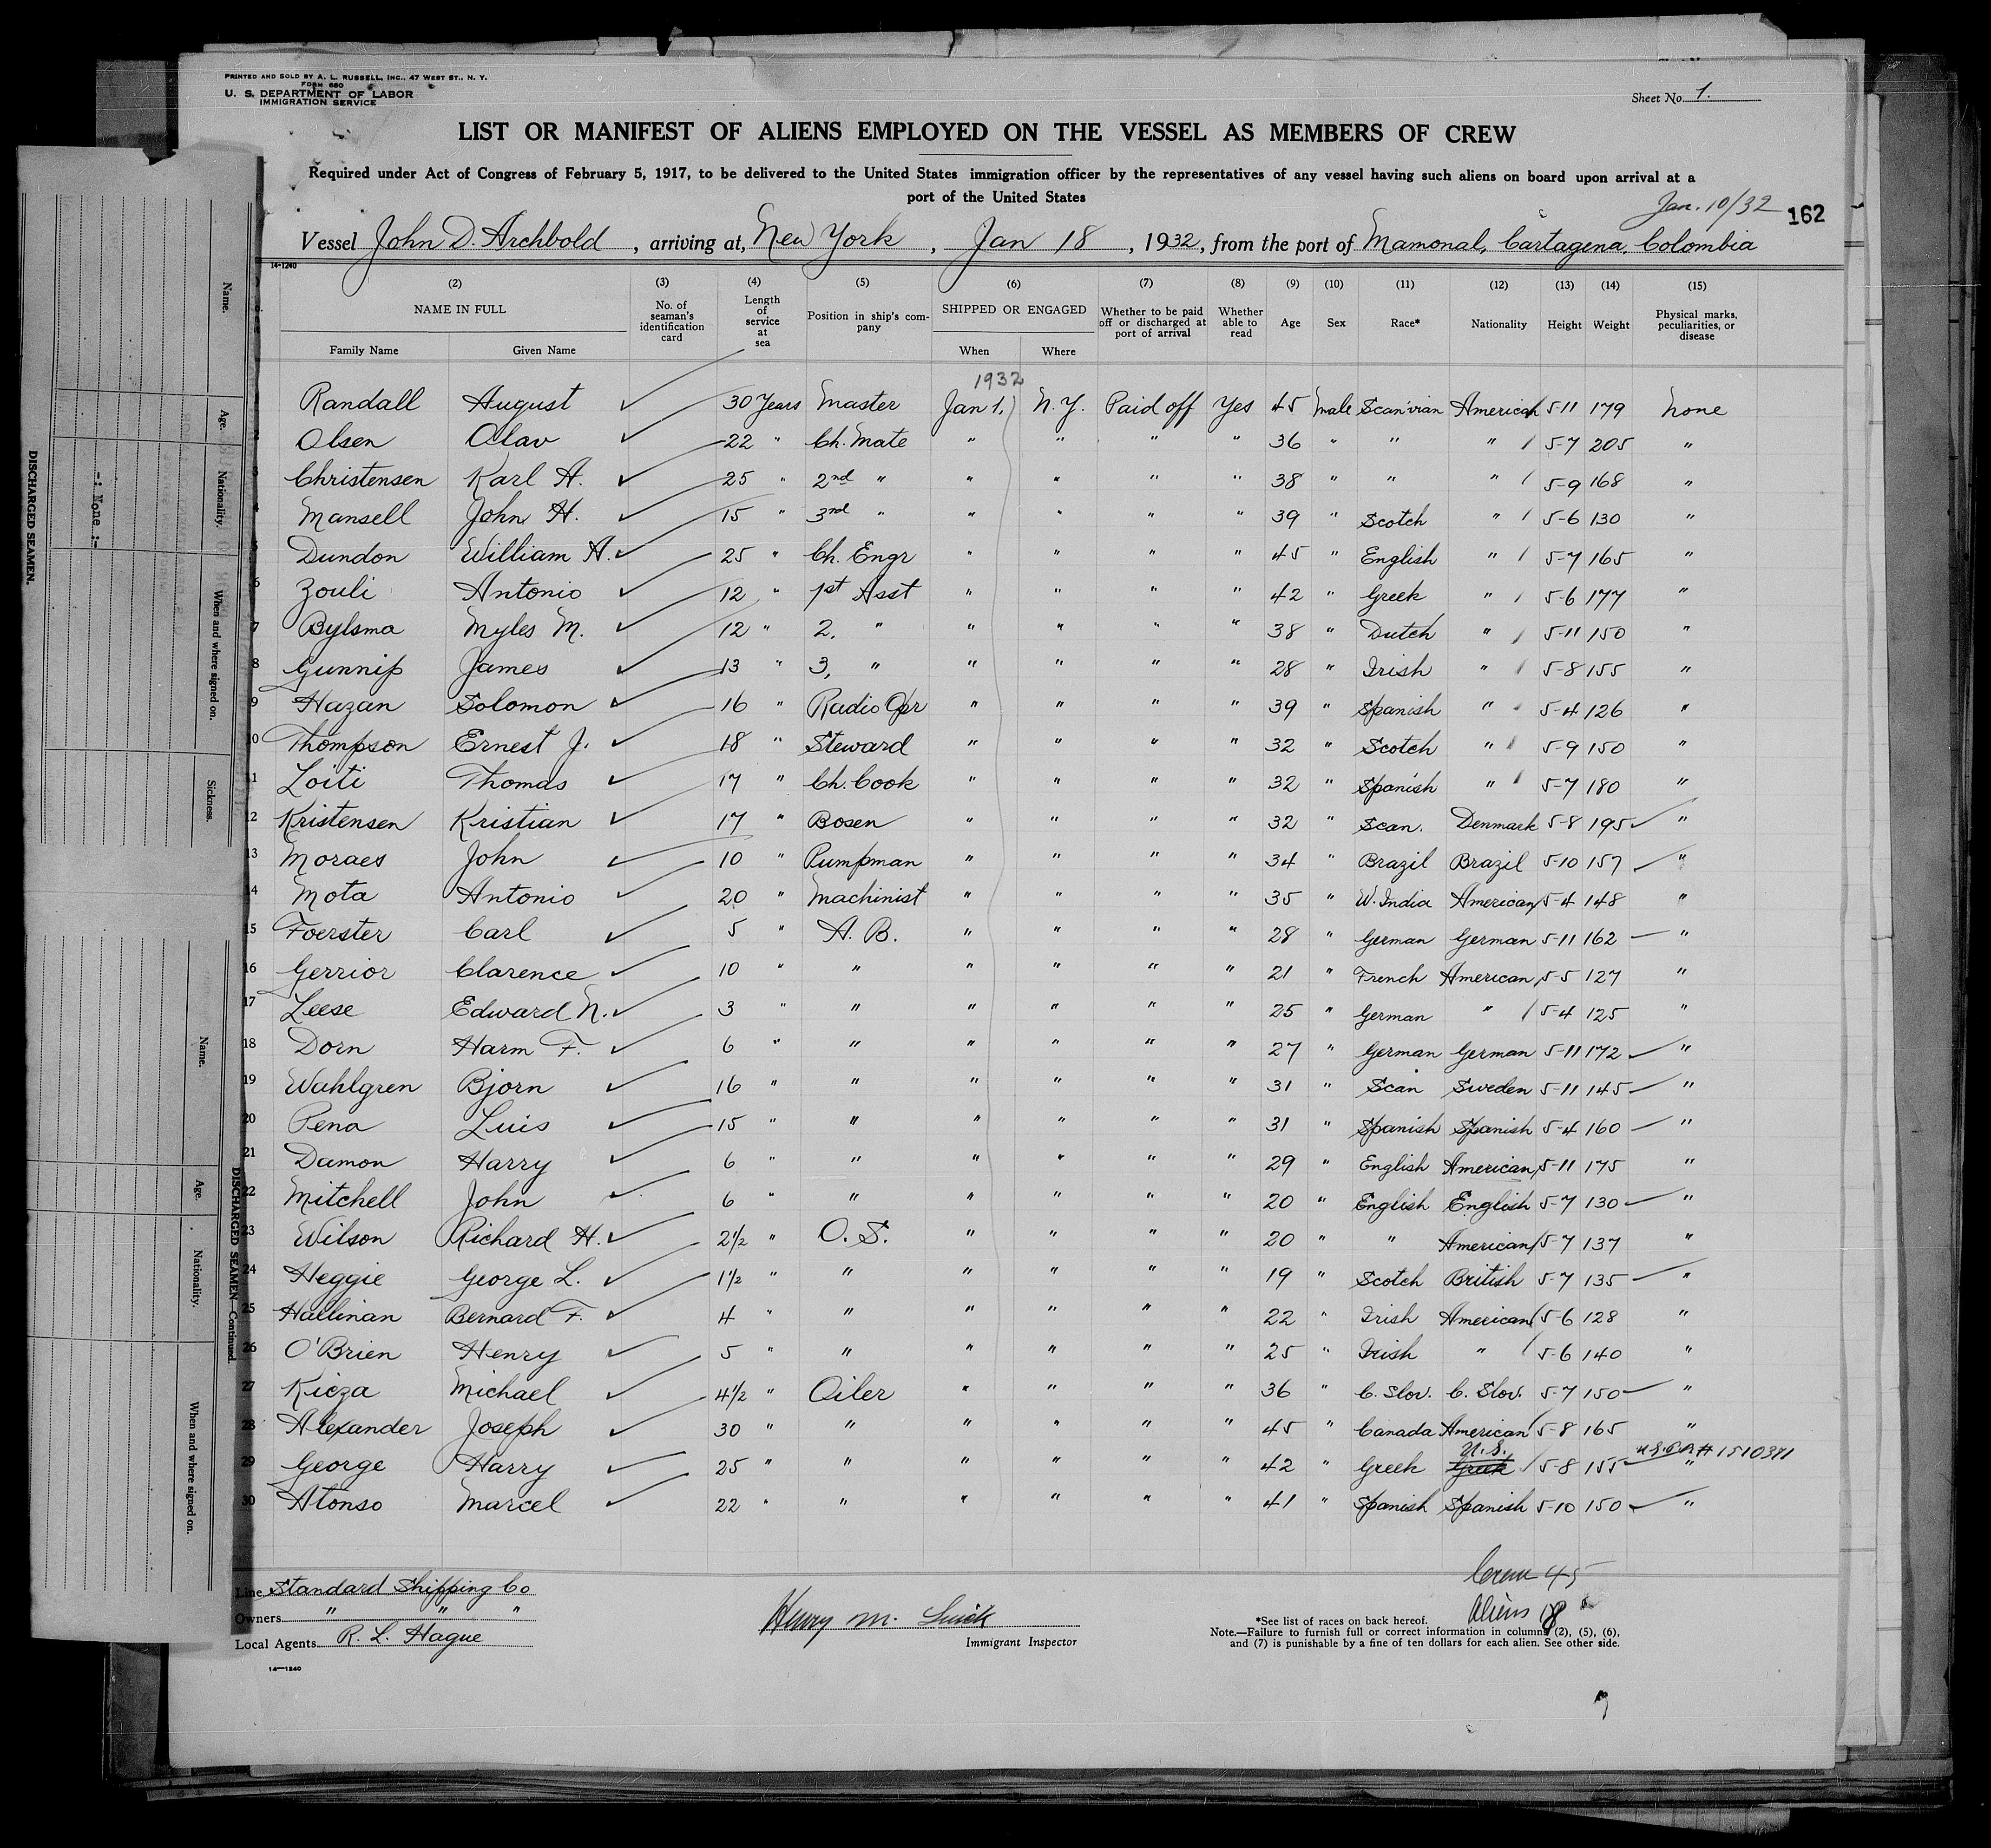 PRINTED AND SOLD BY A. L. RUSSELL, INC., 47 WEST ST., N. Y.
FORM 680
U. S. DEPARTMENT OF LABOR
IMMIGRATION SERVICE
Sheet No. 1.
LIST OR MANIFEST OF ALIENS EMPLOYED ON THE VESSEL AS MEMBERS OF CREW
Required under Act of Congress of February 5, 1917, to be delivered to the United States immigration officer by the representatives of any vessel having such aliens on board upon arrival at a
port of the United States
Jan. 10/32 162
Vessel John D. Archbold, arriving at, New York, Jan 18, 1932, from the port of Mamonal, Cartagena, Colombia
14-1240
(2) (3) (4) (5) (6) (7) (8) (9) (10) (11) (12) (13) (14) (15)
NAME IN FULL No. of seaman's identification card Length of service at sea Position in ship's company SHIPPED OR ENGAGED Whether to be paid off or discharged at port of arrival Whether able to read Age Sex Race* Nationality Height Weight Physical marks, peculiarities, or disease
Family Name Given Name When Where
1932
Randall August 30 Years Master Jan 1, N.Y. Paid off Yes 45 Male Scan'vian American 5-11 179 None
2 Olsen Olav 22 " Ch. Mate " " " " 36 " " " 5-7 205 "
3 Christensen Karl A. 25 " 2nd " " " " " 38 " " " 5-9 168 "
4 Mansell John H. 15 " 3rd " " " " " 39 " Scotch " 5-6 130 "
5 Dundon William A. 25 " Ch. Engr " " " " 45 " English " 5-7 165 "
6 Zouli Antonio 12 " 1st Asst " " " " 42 " Greek " 5-6 177 "
7 Bylsma Myles M. 12 " 2, " " " " " 38 " Dutch " 5-11 150 "
8 Gunnip James 13 " 3, " " " " " 28 " Irish " 5-8 155 "
9 Hazan Solomon 16 " Radio Opr " " " " 39 " Spanish " 5-4 126 "
10 Thompson Ernest J. 18 " Steward " " " " 32 " Scotch " 5-9 150 "
11 Loiti Thomas 17 " Ch. Cook " " " " 32 " Spanish " 5-7 180 "
12 Kristensen Kristian 17 " Bosen " " " " 32 " Scan. Denmark 5-8 195 "
13 Moraes John 10 " Pumpman " " " " 34 " Brazil Brazil 5-10 157 "
14 Mota Antonio 20 " Machinist " " " " 35 " W. India American 5-4 148 "
15 Foerster Carl 5 " A. B. " " " " 28 " German German 5-11 162 "
16 Gerrior Clarence 10 " " " " " " 21 " French American 5-5 127 "
17 Leese Edward N. 3 " " " " " " 25 " German " 5-4 125 "
18 Dorn Harm F. 6 " " " " " " 27 " German German 5-11 172 "
19 Wahlgren Bjorn 16 " " " " " " 31 " Scan Sweden 5-11 145 "
20 Pena Luis 15 " " " " " " 31 " Spanish Spanish 5-4 160 "
21 Damon Harry 6 " " " " " " 29 " English American 5-11 175 "
22 Mitchell John 6 " " " " " " 20 " English English 5-7 130 "
23 Wilson Richard H. 2½ " O. S. " " " " 20 " " American 5-7 137 "
24 Heggie George L. 1½ " " " " " " 19 " Scotch British 5-7 135 "
25 Hallinan Bernard F. 4 " " " " " " 22 " Irish American 5-6 128 "
26 O'Brien Henry 5 " " " " " " 25 " Irish " 5-6 140 "
27 Kicza Michael 4½ " Oiler " " " " 36 " C. Slov. C. Slov. 5-7 150 "
28 Alexander Joseph 30 " " " " " " 45 " Canada American 5-8 165 "
29 George Harry 25 " " " " " " 42 " Greek Greek U.S. 5-8 155 "
30 Alonso Marcel 22 " " " " " " 41 " Spanish Spanish 5-10 150 "
Crew 45
Aliens 18
Line Standard Shipping Co
Owners " " "
Local Agents R. L. Hague
Henry M.
Immigrant Inspector
*See list of races on back hereof.
Note.—Failure to furnish full or correct information in columns (2), (5), (6),
and (7) is punishable by a fine of ten dollars for each alien. See other side.
14—1240
DISCHARGED SEAMEN.
Name. Age. Nationality. When and where signed on. Sickness.
-: None :-
DISCHARGED SEAMEN—Continued.
Name. Age. Nationality. When and where signed on.